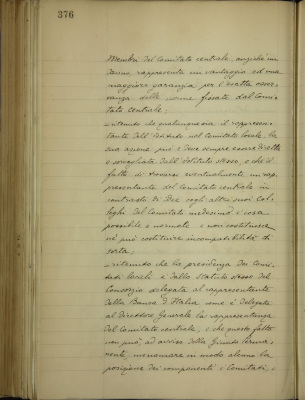 376
Membri del Comitato centrale, anziché un
danno, rappresenta un vantaggio ed una
maggiore garanzia per l'esatta osser-
vanza delle norme fissate dal Comi-
tato centrale;
ritenuto che qualunque sia il rappresen-
tante dell'Istituto nel Comitato locale, la
sua azione può e deve sempre essere diretta
e sorvegliata dall'Istituto stesso, e che il
fatto di trovarsi eventualmente un rap-
presentante del Comitato centrale in
contrasto di idee cogli altri suoi Col-
leghi del Comitato medesimo è cosa
possibile e normale e non costituisce
né può costituire incompatibilità di
sorta;
ritenuto che la presidenza dei Comi-
tati locali è dallo Statuto stesso del
Consorzio delegata al rappresentante
della Banca d'Italia come è delegata
al Direttore Generale la rappresentanza
del Comitato centrale, e che questo fatto
non può, ad avviso della Giunta perma-
nente, menomare in modo alcuno la
posizione dei componenti i Comitati, e